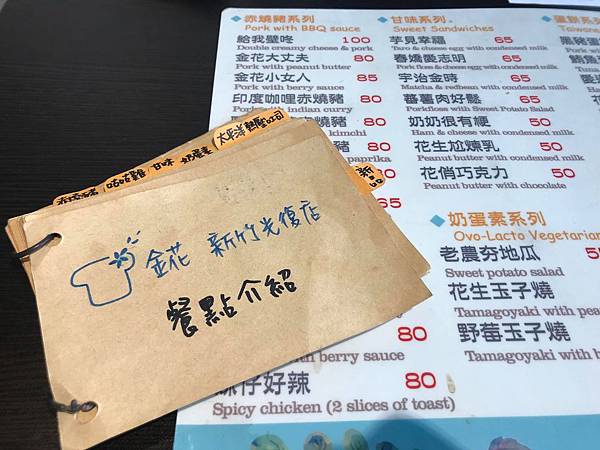 赤燒豬系列
Pork with BBQ sauce
給我壁咚 100
Double creamy cheese & pork
金花大丈夫 80
Pork with peanut butter
金花小女人 85
Pork with berry sauce
印度咖哩赤燒豬 80
Pork with indian curry
燒豬 80
kimchi
80
paprika
65
80
with berry sauce
妹仔好辣 80
Spicy chicken (2 slices of toast)
甘味系列
Sweet Sandwiches
芋見幸福 65
Taro & cheese egg with condensed milk
春嬌愛志明 60
Pork floss & cheese egg with condensed milk
宇治金時 65
Matcha & redbean with condensed milk
蕃薯肉好鬆 65
Porkfloss with Sweet Potato Salad
奶奶很有梗 50
Ham & cheese with condensed milk
花生尬煉乳 50
Peanut butter with condensed milk
花俏巧克力 50
Peanut butter with chocolate
奶蛋素系列
Ovo-Lacto Vegetarian
老農夯地瓜
Sweet potato salad
花生玉子燒
Tamagoyaki with
野莓玉子燒
Tamagoyaki with
太平洋熱壓吐司
奶蛋素
甘味
咕咕雞
赤燒豬
新品
金花 新竹光復店
餐點介紹